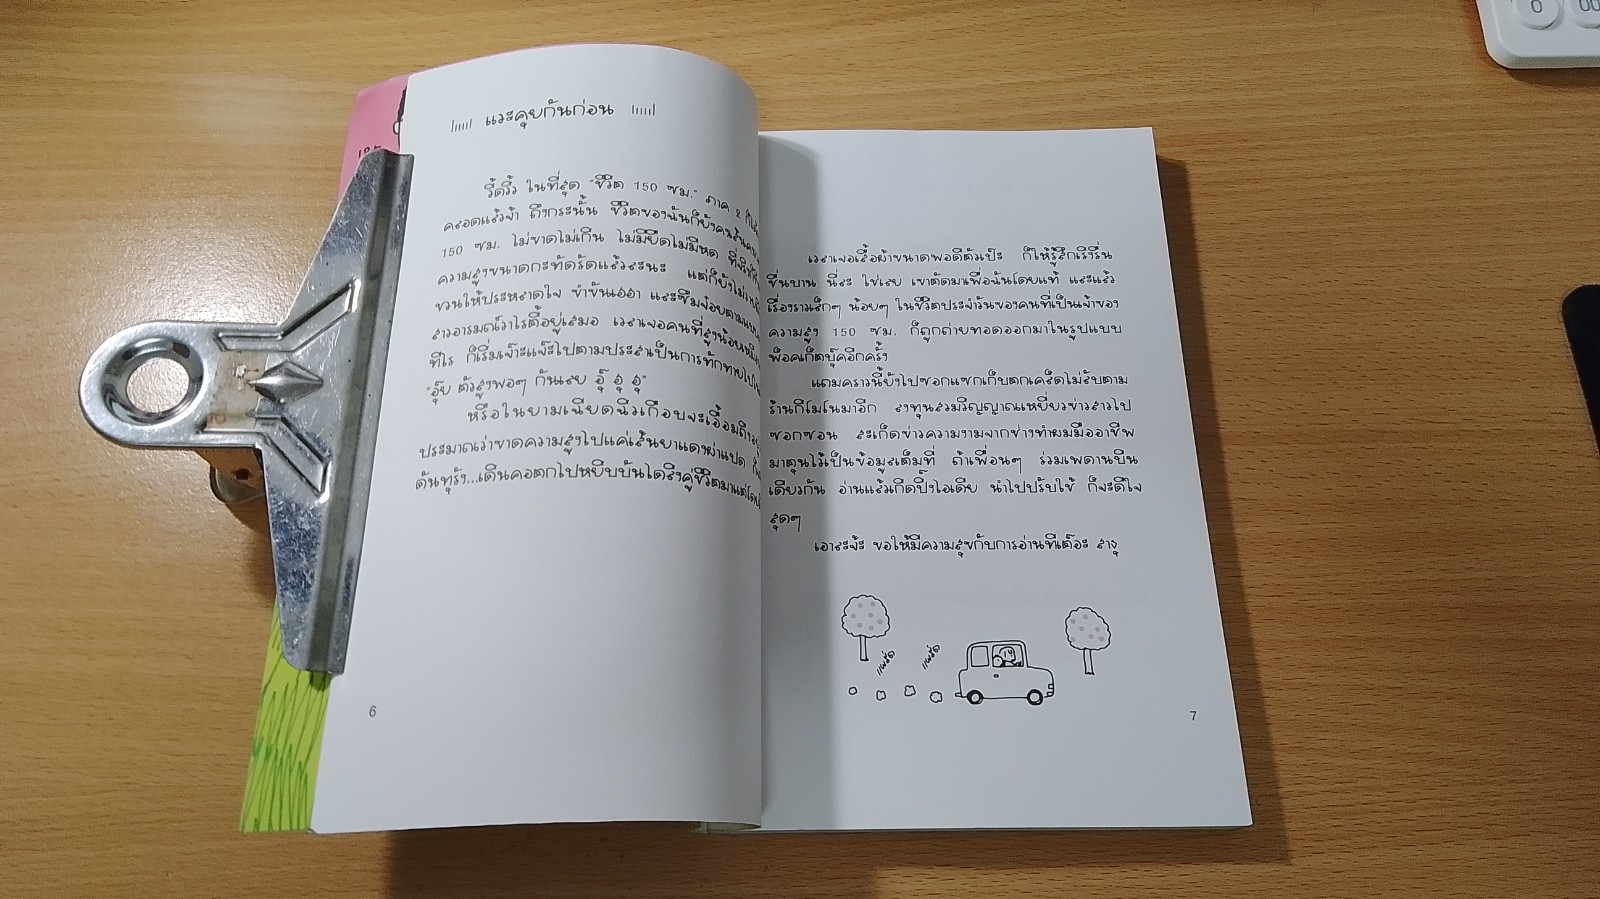 แวะคุยกันก่อน
วี้ดวิ้ว ในที่สุด "ชีวิต 150 ซม." ภาค 2 ก็
คลอดแล้วจ้า ถึงกระนั้น ชีวิตของฉันก็ยังคง
150 ซม. ไม่ขาดไม่เกิน ไม่มียืดไม่มีหด
ความสูงขนาดกะทัดรัดแล้วล่ะนะ แต่ก็ยังไม่
ชวนให้ประหลาดใจ ขำขันเฮฮา และซึมจ๋อยตาม
สาวอารมณ์วาไรตี้อยู่เสมอ เวลาเจอคนที่สูงน้อย
ทีไร ก็เริ่มเจ๊าะแจ๊ะไปตามประสาเป็นการทักทาย
"อุ๊ย ตัวสูงพอๆ กันเลย อุ๊ อุ อุ"
หรือในยามเฉียดฉิวเกือบจะเอื้อมถึง
ประมาณว่าขาดความสูงไปแค่เส้นยาแดงผ่าแปด
ดันทุรัง...เดินคอตกไปหยิบบันไดลิงคู่ชีวิตมาแต่โดย
6
เวลาเจอเสื้อผ้าขนาดพอดีตัวเป๊ะ ก็ให้รู้สึกเริงรื่น
ชื่นบาน นี่ล่ะ ใช่เลย เขาตัดมาเพื่อฉันโดยแท้ และแล้ว
เรื่องราวเล็กๆ น้อยๆ ในชีวิตประจำวันของคนที่เป็นเจ้าของ
ความสูง 150 ซม. ก็ถูกถ่ายทอดออกมาในรูปแบบ
พ็อคเก็ตบุ๊คอีกครั้ง
แถมคราวนี้ยังไปซอกแซกเก็บตกเคล็ดไม่ลับตาม
ร้านกิโมโนมาอีก ลงทุนสวมวิญญาณเหยี่ยวข่าวสาวไป
ซอกซอน สะเก็ดข่าวความงามจากช่างทำผมมืออาชีพ
มาตุนไว้เป็นข้อมูลเต็มที่ ถ้าเพื่อนๆ ร่วมเพดานบิน
เดียวกัน อ่านแล้วเกิดปิ๊งไอเดีย นำไปปรับใช้ ก็จะดีใจ
สุดๆ
เอาละจ้ะ ขอให้มีความสุขกับการอ่านทีเต๊อะ สาธุ
แพร่ด
แพร่ด
7